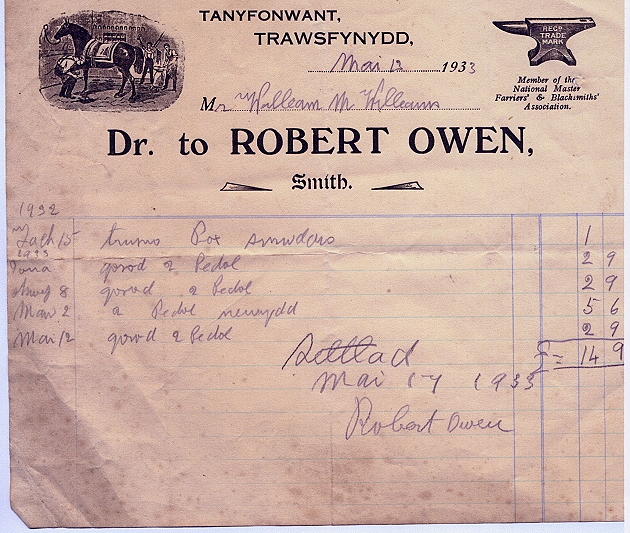 TANYFONWANT,
TRAWSFYNYDD,
REGD
TRADE
MARK
Mai 12 1933
Member of the
National Master
Farriers' & Blacksmiths'
Association.
Mr William M Williams
Dr. to ROBERT OWEN,
Smith.
1932
15 Box 1
1933
gosod 2 Pedol 2 9
8 gosod 2 Pedol 2 9
Maw 2 a Pedol newydd 5 6
Mai 12 gosod 2 Pedol 2 9
£ = 14 9
Settlad
Mai 17 1933
Robert Owen